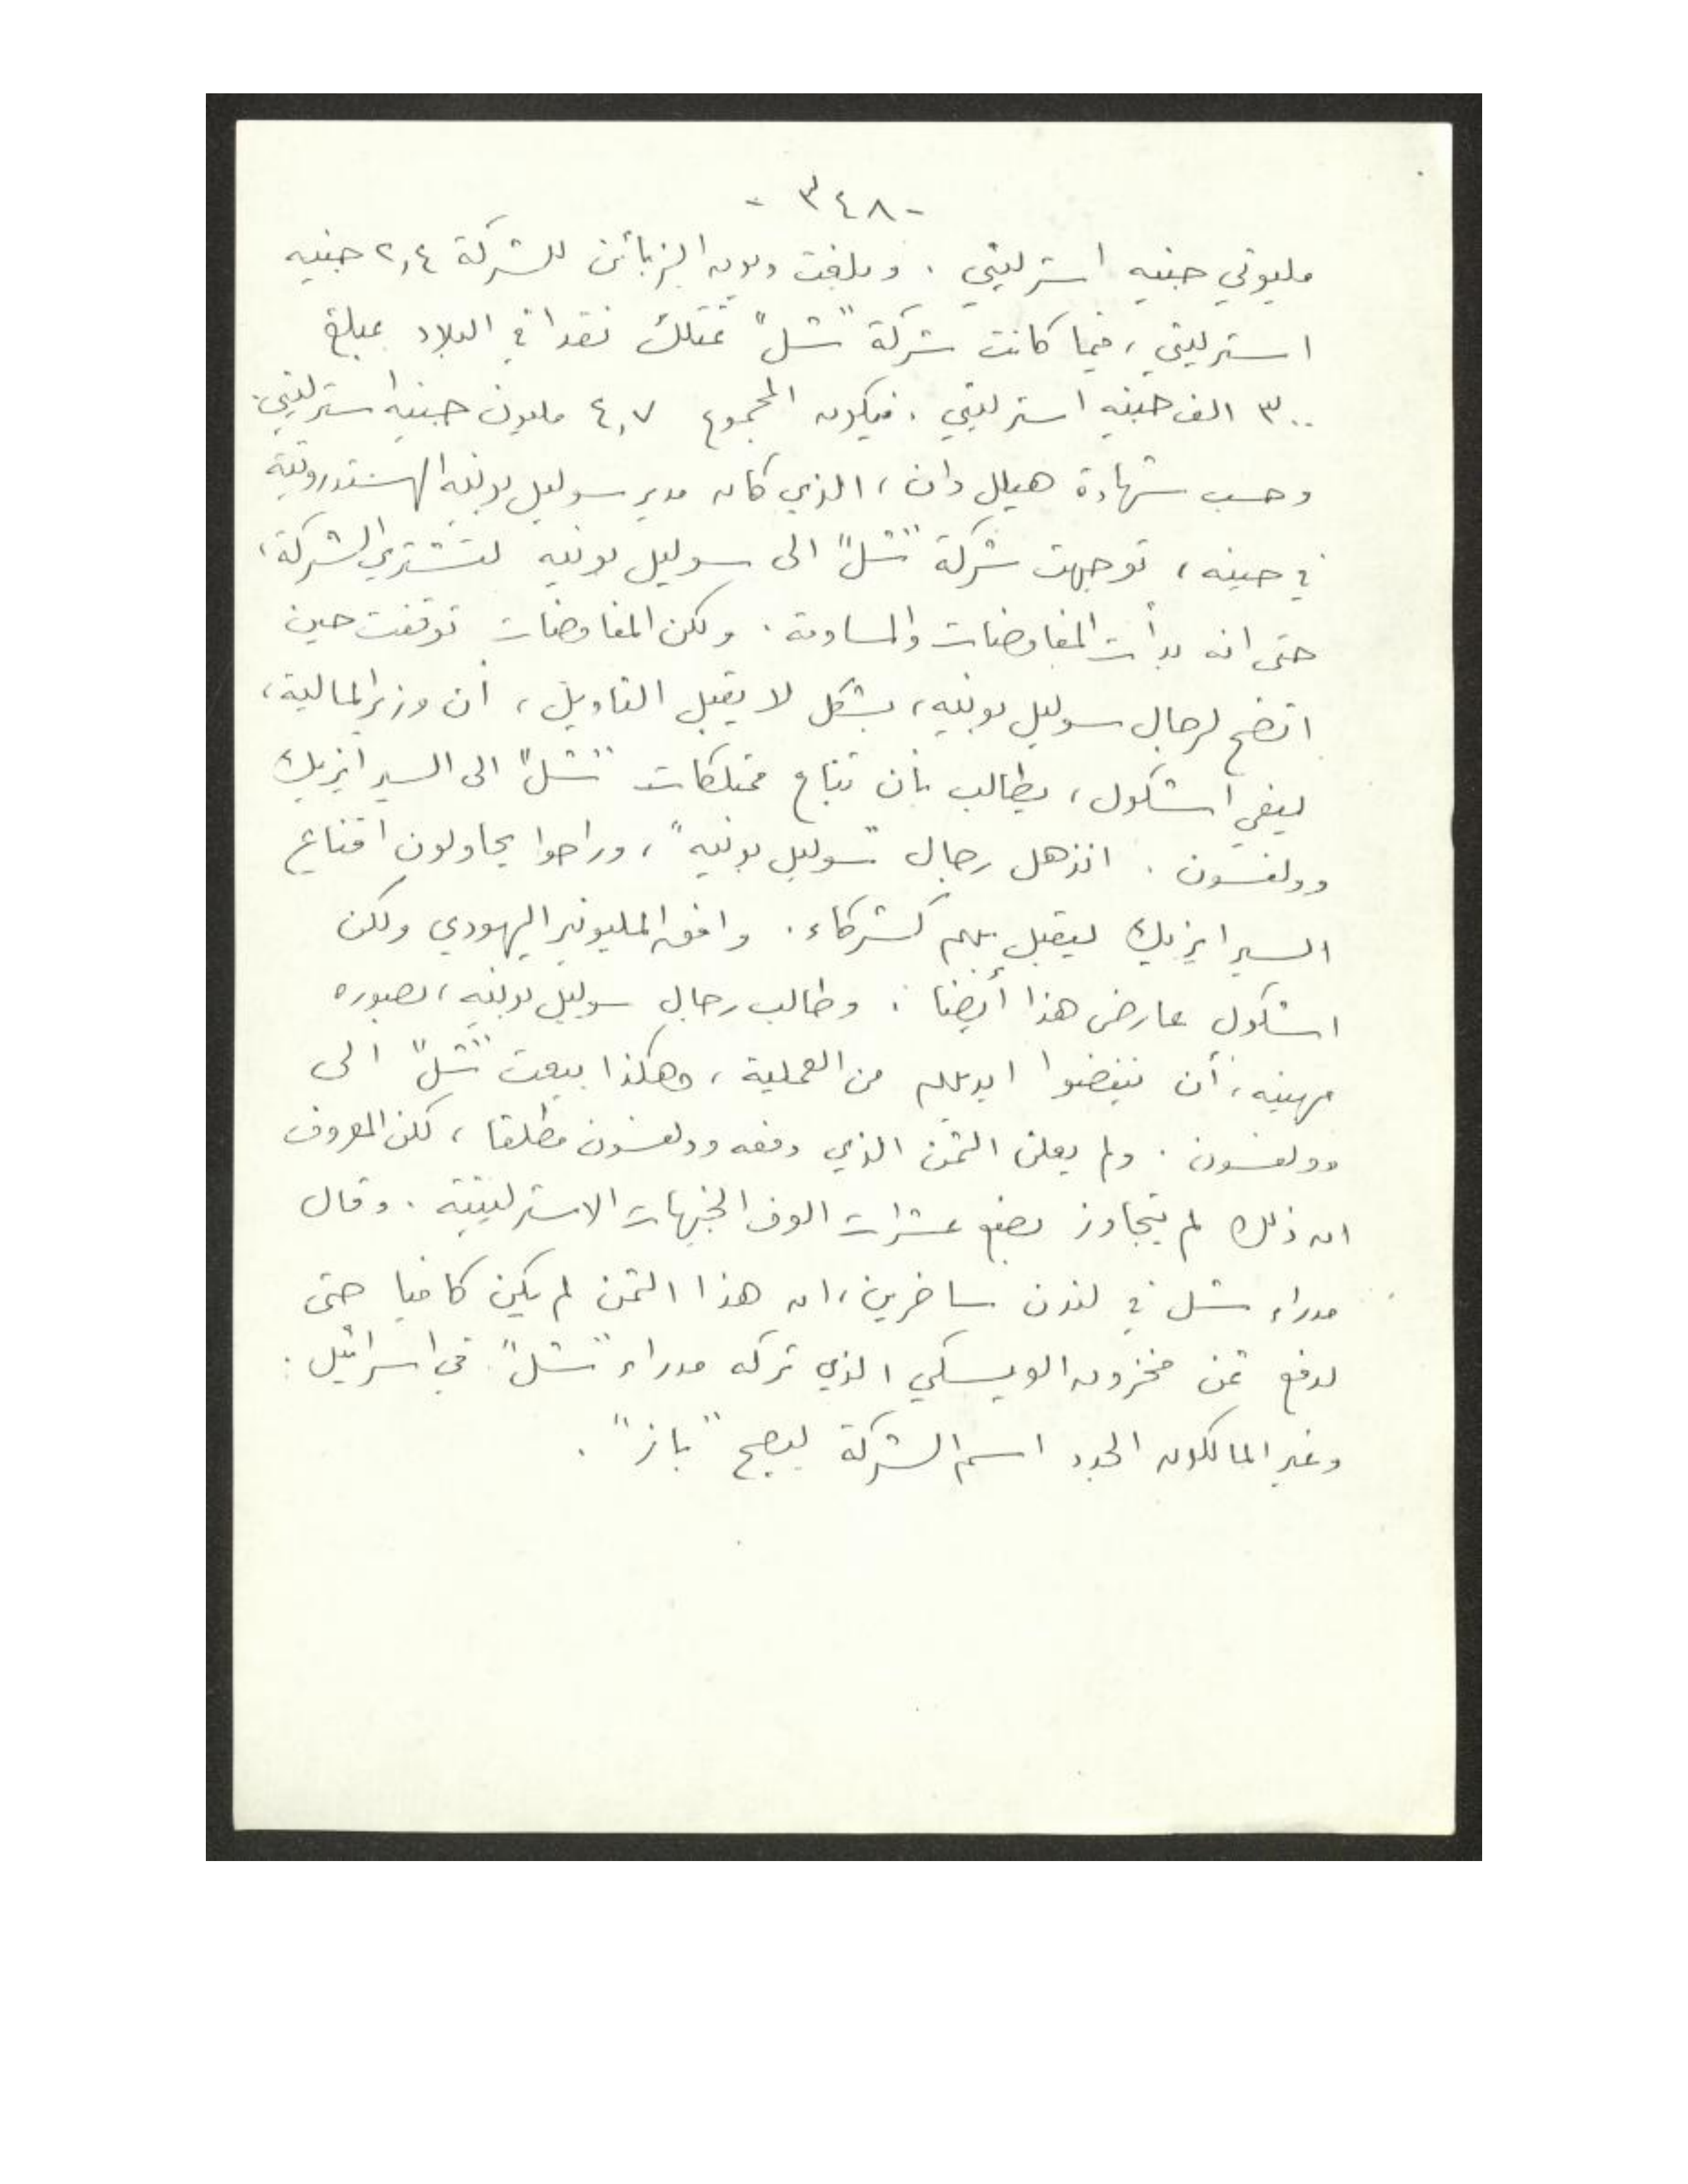 - ٣٤٨ -
مليوني جنيه استرليني . وبلغت ديون الزبائن للشركة ٢,٤ جنيه
استرليني ، فيما كانت شركة "شل" تمتلك نقدا في البلاد بمبلغ
٣٠٠ الف جنيه استرليني . فيكون المجموع ٤,٧ مليون جنيه استرليني .
وحسب شهادة هيلل دان ، الذي كان مدير سوليل بونيه الهستدروتية
في حينه ، توجهت شركة "شل" الى سوليل بونيه لتشتري الشركة ،
حتى انه بدأت المفاوضات والمساومة . ولكن المفاوضات توقفت حين
اتضح لرجال سوليل بونيه ، بشكل لا يقبل التاويل ، أن وزير المالية ،
ليفي اشكول ، يطالب بأن تباع ممتلكات "شل" الى السير ايزيك
وولفسون . انذهل رجال "سوليل بونيه" ، وراحوا يحاولون اقناع
السير ايزيك ليقبل بهم كشركاء . وافق المليونير اليهودي ولكن
اشكول عارض هذا أيضا . وطالب رجال سوليل بونيه ، بصوره
مهينه ، أن ينفضوا ايديهم من العملية ، وهكذا بيعت "شل" الى
وولفسون . ولم يعلن الثمن الذي دفعه وولفسون مطلقا ، لكن المعروف
ان ذلك لم يتجاوز بضع عشرات الوف الجنيهات الاسترلينية . وقال
مدراء شل في لندن ساخرين ، ان هذا الثمن لم يكن كافيا حتى
لدفع ثمن مخزون الويسكي الذي تركه مدراء "شل" في اسرائيل .
وغير المالكون الجدد اسم الشركة ليصبح "باز" .